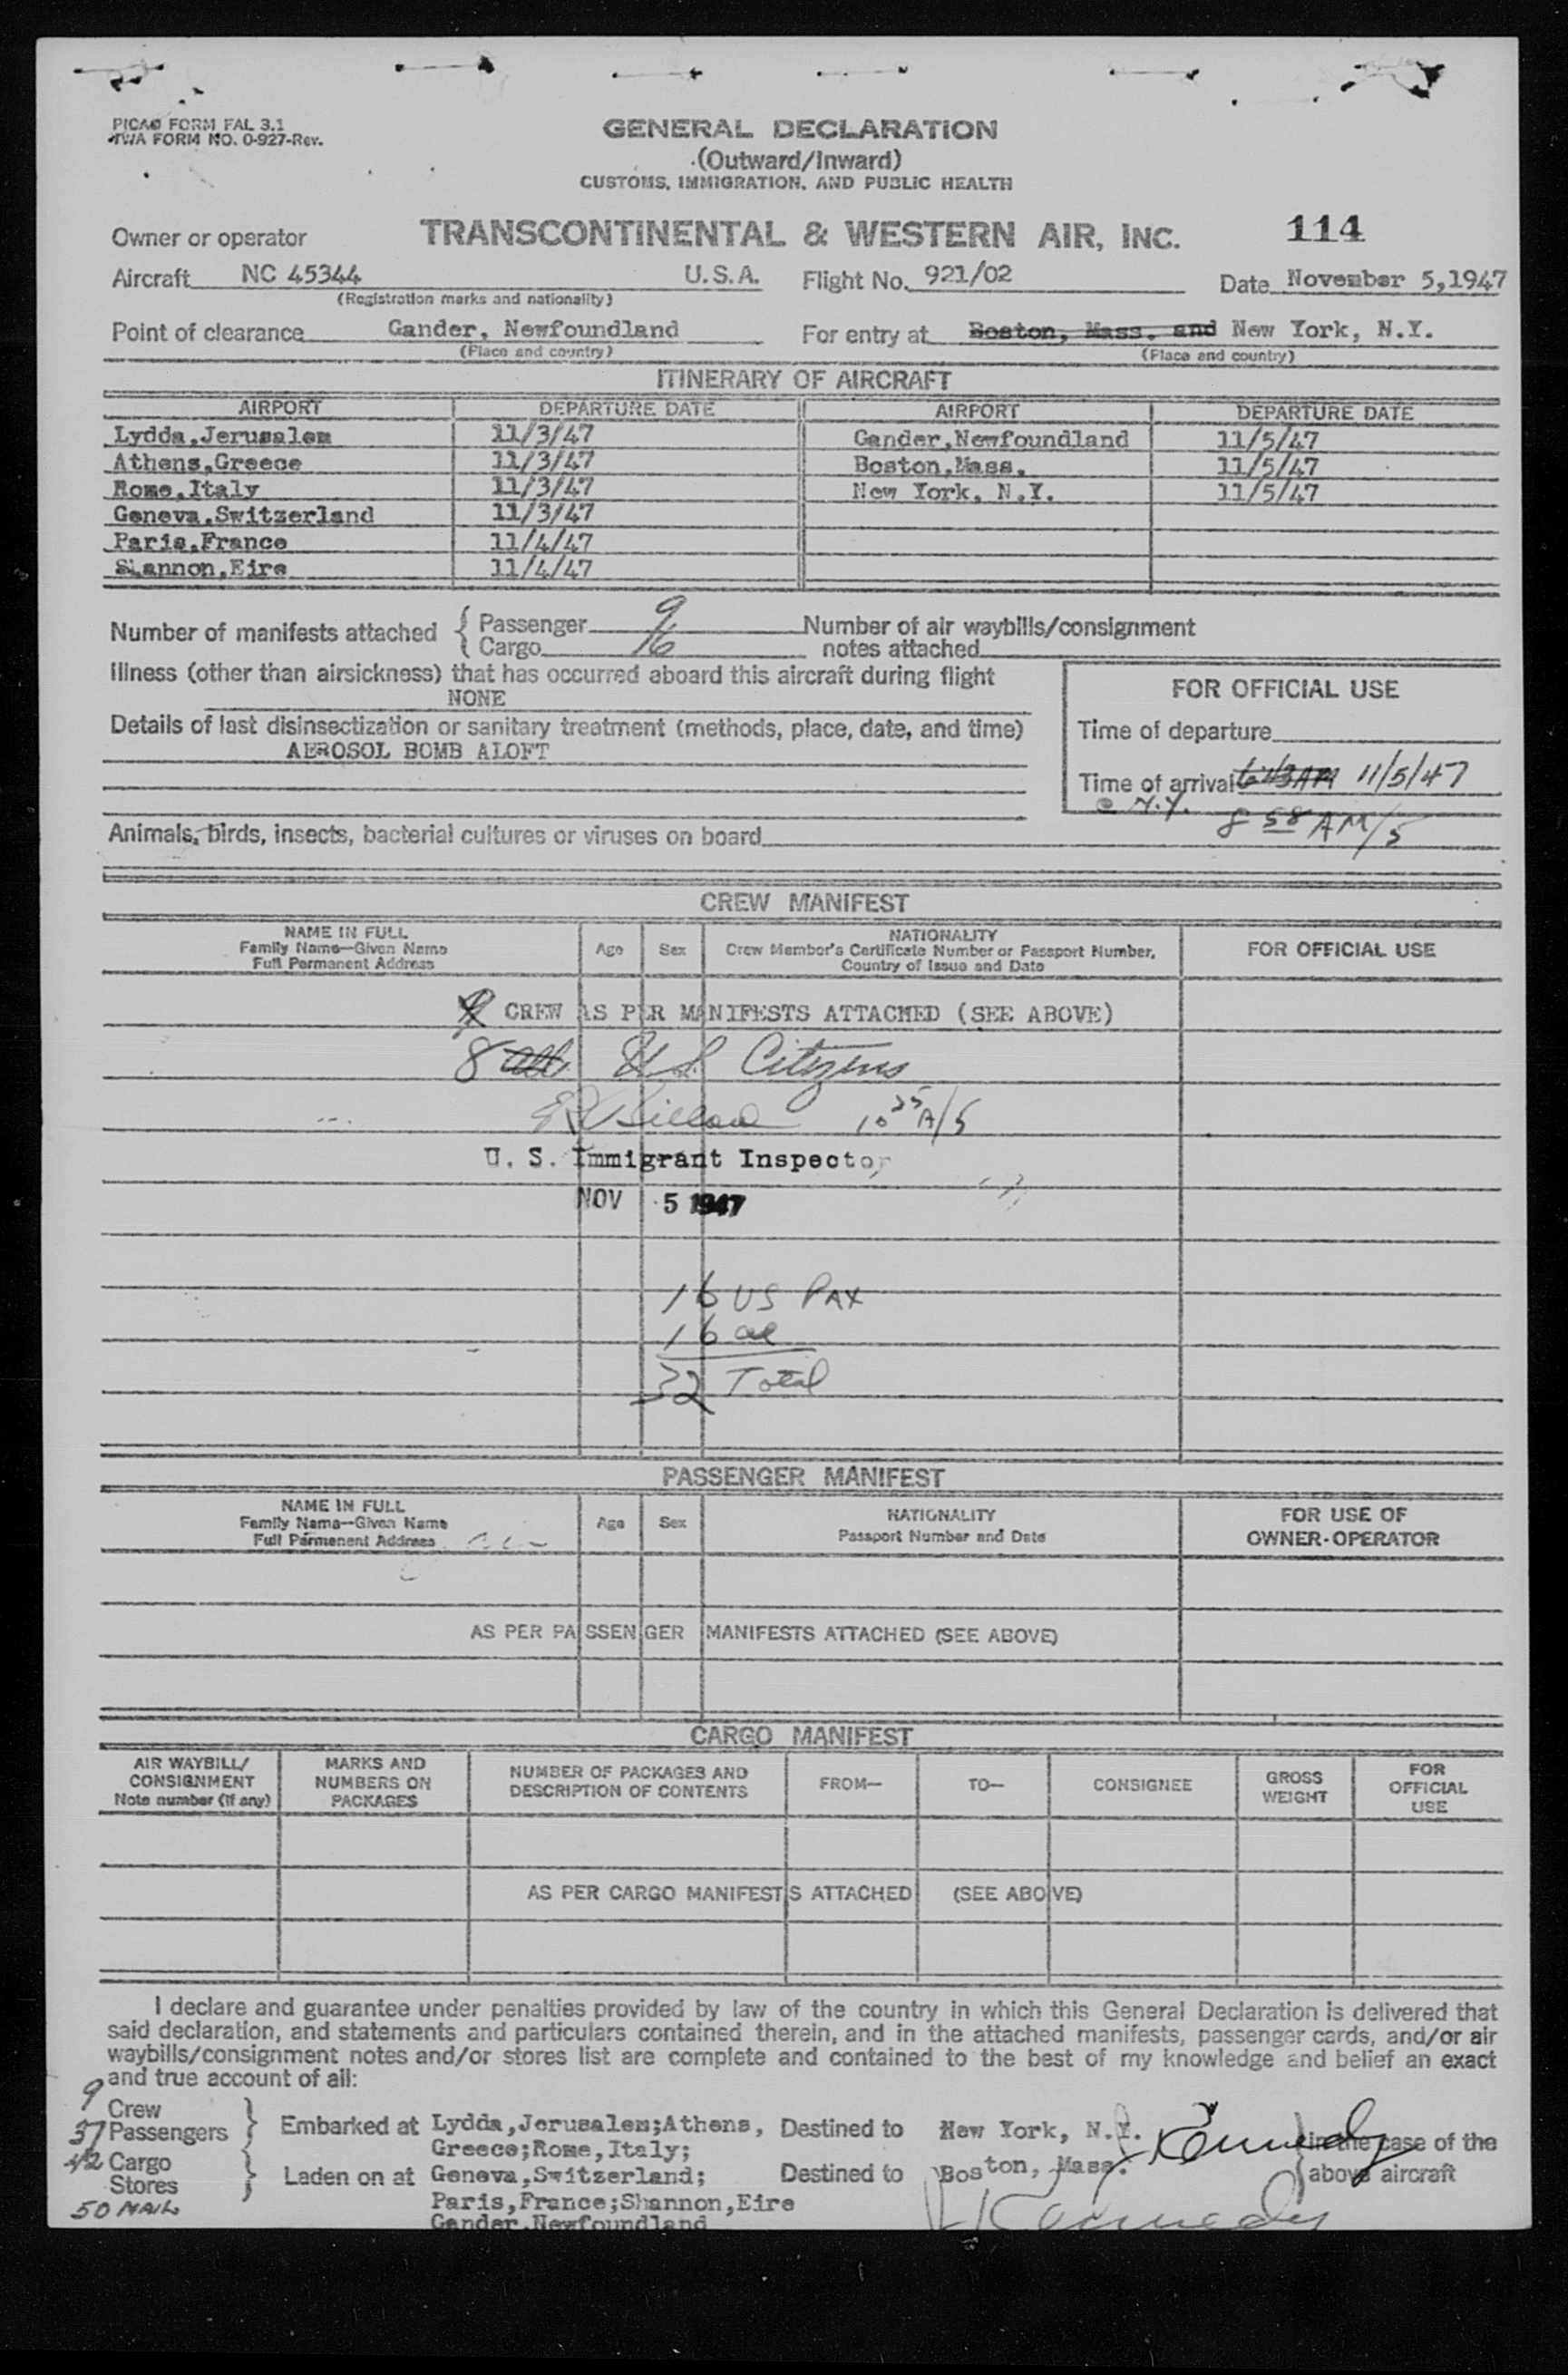 PICAO FORM FAL 3.1
TWA FORM NO. 0-927-Rev.
GENERAL DECLARATION
(Outward/Inward)
CUSTOMS, IMMIGRATION, AND PUBLIC HEALTH
Owner or operator TRANSCONTINENTAL & WESTERN AIR, INC. 114
Aircraft NC 45344 U.S.A. Flight No. 921/02 Date November 5,1947
(Registration marks and nationality)
Point of clearance Gander, Newfoundland For entry at Boston, Mass. and New York, N.Y.
(Place and country) (Place and country)
ITINERARY OF AIRCRAFT
AIRPORT DEPARTURE DATE AIRPORT DEPARTURE DATE
Lydda,Jerusalem 11/3/47 Gander,Newfoundland 11/5/47
Athens,Greece 11/3/47 Boston,Mass. 11/5/47
Rome,Italy 11/3/47 New York, N.Y. 11/5/47
Geneva,Switzerland 11/3/47
Paris,France 11/4/47
Shannon,Eire 11/4/47
Number of manifests attached { Passenger 9 Number of air waybills/consignment
Cargo 16 notes attached
Illness (other than airsickness) that has occurred aboard this aircraft during flight
NONE
FOR OFFICIAL USE
Details of last disinsectization or sanitary treatment (methods, place, date, and time)
AEROSOL BOMB ALOFT
Time of departure
Time of arrival 11/5/47
@ N.Y. 8 58 AM/5
Animals, birds, insects, bacterial cultures or viruses on board
CREW MANIFEST
NAME IN FULL
Family Name—Given Name
Full Permanent Address
Age Sex
NATIONALITY
Crew Member's Certificate Number or Passport Number,
Country of Issue and Date
FOR OFFICIAL USE
9 CREW AS PER MANIFESTS ATTACHED (SEE ABOVE)
8 all US Citizens
10 35 A/5
U. S. Immigrant Inspector
NOV 5 1947
16 US PAX
16 al
32 Total
PASSENGER MANIFEST
NAME IN FULL
Family Name—Given Name
Full Permanent Address
Age Sex
NATIONALITY
Passport Number and Date
FOR USE OF
OWNER-OPERATOR
AS PER PASSENGER MANIFESTS ATTACHED (SEE ABOVE)
CARGO MANIFEST
AIR WAYBILL/
CONSIGNMENT
Note number (if any)
MARKS AND
NUMBERS ON
PACKAGES
NUMBER OF PACKAGES AND
DESCRIPTION OF CONTENTS
FROM— TO— CONSIGNEE
GROSS
WEIGHT
FOR
OFFICIAL
USE
AS PER CARGO MANIFESTS ATTACHED (SEE ABOVE)
I declare and guarantee under penalties provided by law of the country in which this General Declaration is delivered that
said declaration, and statements and particulars contained therein, and in the attached manifests, passenger cards, and/or air
waybills/consignment notes and/or stores list are complete and contained to the best of my knowledge and belief an exact
and true account of all:
9 Crew
37 Passengers } Embarked at Lydda,Jerusalem;Athens, Destined to New York, N.Y. Kennedy in the case of the
Greece;Rome,Italy;
42 Cargo
Stores } Laden on at Geneva,Switzerland; Destined to Boston, Mass. above aircraft
50 MAIL Paris,France;Shannon,Eire
Gander,Newfoundland Kennedy